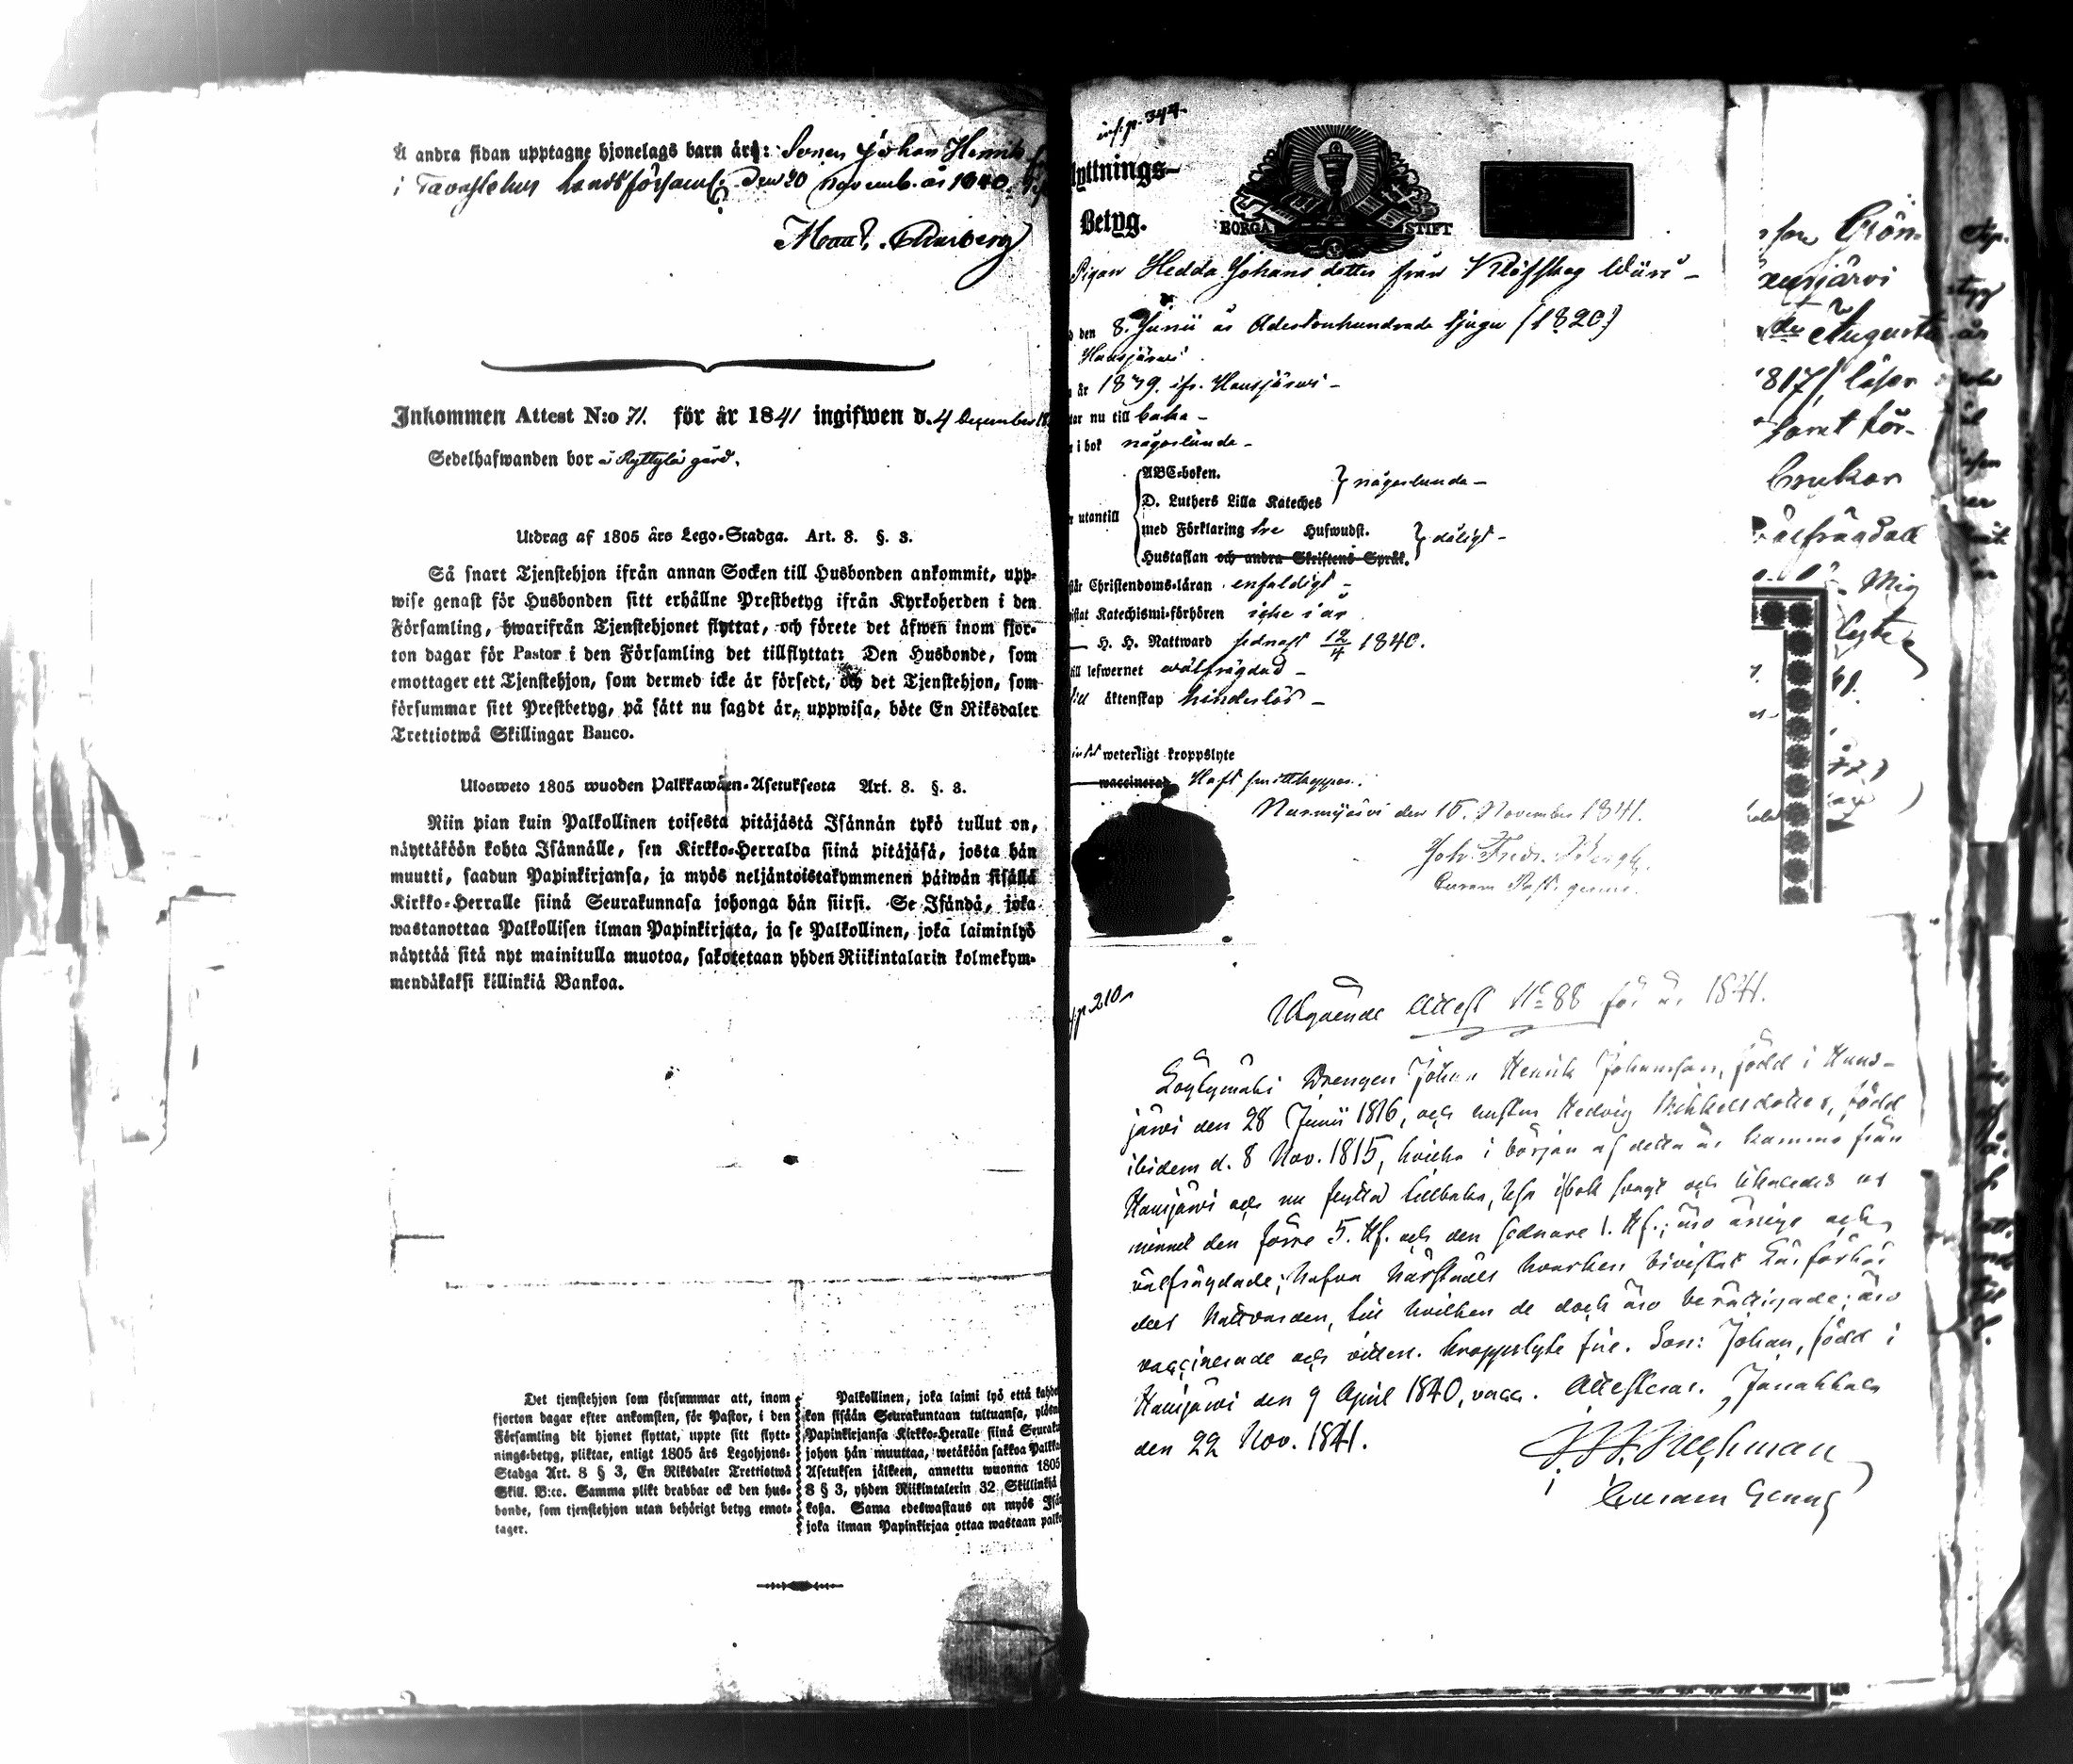 Å andra sidan upptagne hjonelags barn äro: Sonen Johan Henrik
i Tavastehus landsförsaml. den 20 novemb. år 1840.
Inkommen Attest N:o 71. för år 1841 ingifwen d. 4 December
Sedelhafwanden bor å Ryttylä gård.
Utdrag af 1805 års Lego-Stadga. Art. 8. §. 3.
Så snart Tjenstehjon ifrån annan Socken till Husbonden ankommit, upp-
wise genast för Husbonden sitt erhållne Prestbetyg ifrån Kyrkoherden i den
Församling, hwarifrån Tjenstehjonet flyttat, och förete det äfwen inom fjor-
ton dagar för Pastor i den Församling det tillflyttat: Den Husbonde, som
emottager ett Tjenstehjon, som dermed icke är försedt, och det Tjenstehjon, som
försummar sitt Prestbetyg, på sätt nu sagdt är, uppwisa, böte En Riksdaler
Trettiotwå Skillingar Banco.
Ulosweto 1805 wuoden Palkkawäen-Asetuksesta Art. 8. §. 3.
Niin pian kuin Palkollinen toisesta pitäjästä Isännän tykö tullut on,
näyttäköön kohta Isännälle, sen Kirkko-Herralda siinä pitäjäsä, josta hän
muutti, saadun Papinkirjansa, ja myös neljäntoistakymmenen päiwän sisällä
Kirkko-Herralle siinä Seurakunnasa johonga hän siirsi. Se Isändä, joka
wastanottaa Palkollisen ilman Papinkirjata, ja se Palkollinen, joka laiminlyö
näyttää sitä nyt mainitulla muotoa, sakotetaan yhden Riikintalarin kolmekym-
mendäkaksi killinkiä Bankoa.
Det tjenstehjon som försummar att, inom
fjorton dagar efter ankomsten, för Pastor, i den
Församling dit hjonet flyttat, uppte sitt flytt-
nings-betyg, pliktar, enligt 1805 års Legohjons-
Stadga Art. 8 § 3, En Riksdaler Trettiotwå
Skill. B:co. Samma plikt drabbar ock den hus-
bonde, som tjenstehjon utan behörigt betyg emot-
tager.
Palkollinen, joka laimi lyö että kahde
kon sisään Seurakuntaan tultuansa, ylöen
Papinkirjansa Kirkko-Heralle siinä Seuraku
johon hän muuttaa, wetäköön sakkoa Palkka
Asetuksen jälkeen, annettu wuonna 1805
8 § 3, yhden Riikintalerin 32 Skillinkiä
koßa. Sama edeswastaus on myös Isän
joka ilman Papinkirjaa ottaa wastaan palko
inf. p. 344.
lyttnings-
Betyg.
BORGÅ STIFT
Pigan Hedda Johansdotter från
den 8. Junii år Adertonhundrade tjugu (1820)
Hausjärwi
år 1839. ifr. Hausjärwi
tar nu till baka
i bok någorlunda
ABC-boken.
D. Luthers Lilla Kateches
någorlunda
utantill
med Förklaring tre Hufwudst.
Hustaflan och andra Skriftens Språk.
dåligt
står Christendoms-läran enfaldigt
istat Katechismi-förhören icke i år
H. H. Nattward sednast 12/4 1840.
till lefwernet wälfrägdad
till äktenskap hinderlös
weterligt kroppslyte
vaccinerad Haft smittkoppor.
Nurmijärvi den 15. November 1841.
p. 210.
Utgående Attest No 88 för år 1841.
Löylymäki Drengen Johan Henrik Johansson, född i Haus-
järvi den 28 Junii 1816, och hustrun Hedvig Mikkelsdotter, född
ibidem d. 8 Nov. 1815, hvilka i början af detta år kommo från
Hausjärvi och nu flytta tillbaka, läsa i bok svagt och likaledes ur
minnet den förre 5. Hf. och den sednare 1. Hf.; äro ärlige och
välfrägdade; hafva härstädes hvarken bivistat Läsförhör
eller Nattvarden, till hvilken de dock äro berättigade; äro
vaccinerade och veterl. kroppslyte frie. Son: Johan, född i
Hausjärvi den 9 April 1840, vacc. Attesterar. Janakkala
den 22 Nov. 1841.